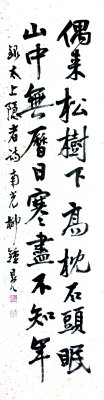 偶來松樹下高枕石頭眠
山中無曆日寒盡不知年
錄太上隱者詩